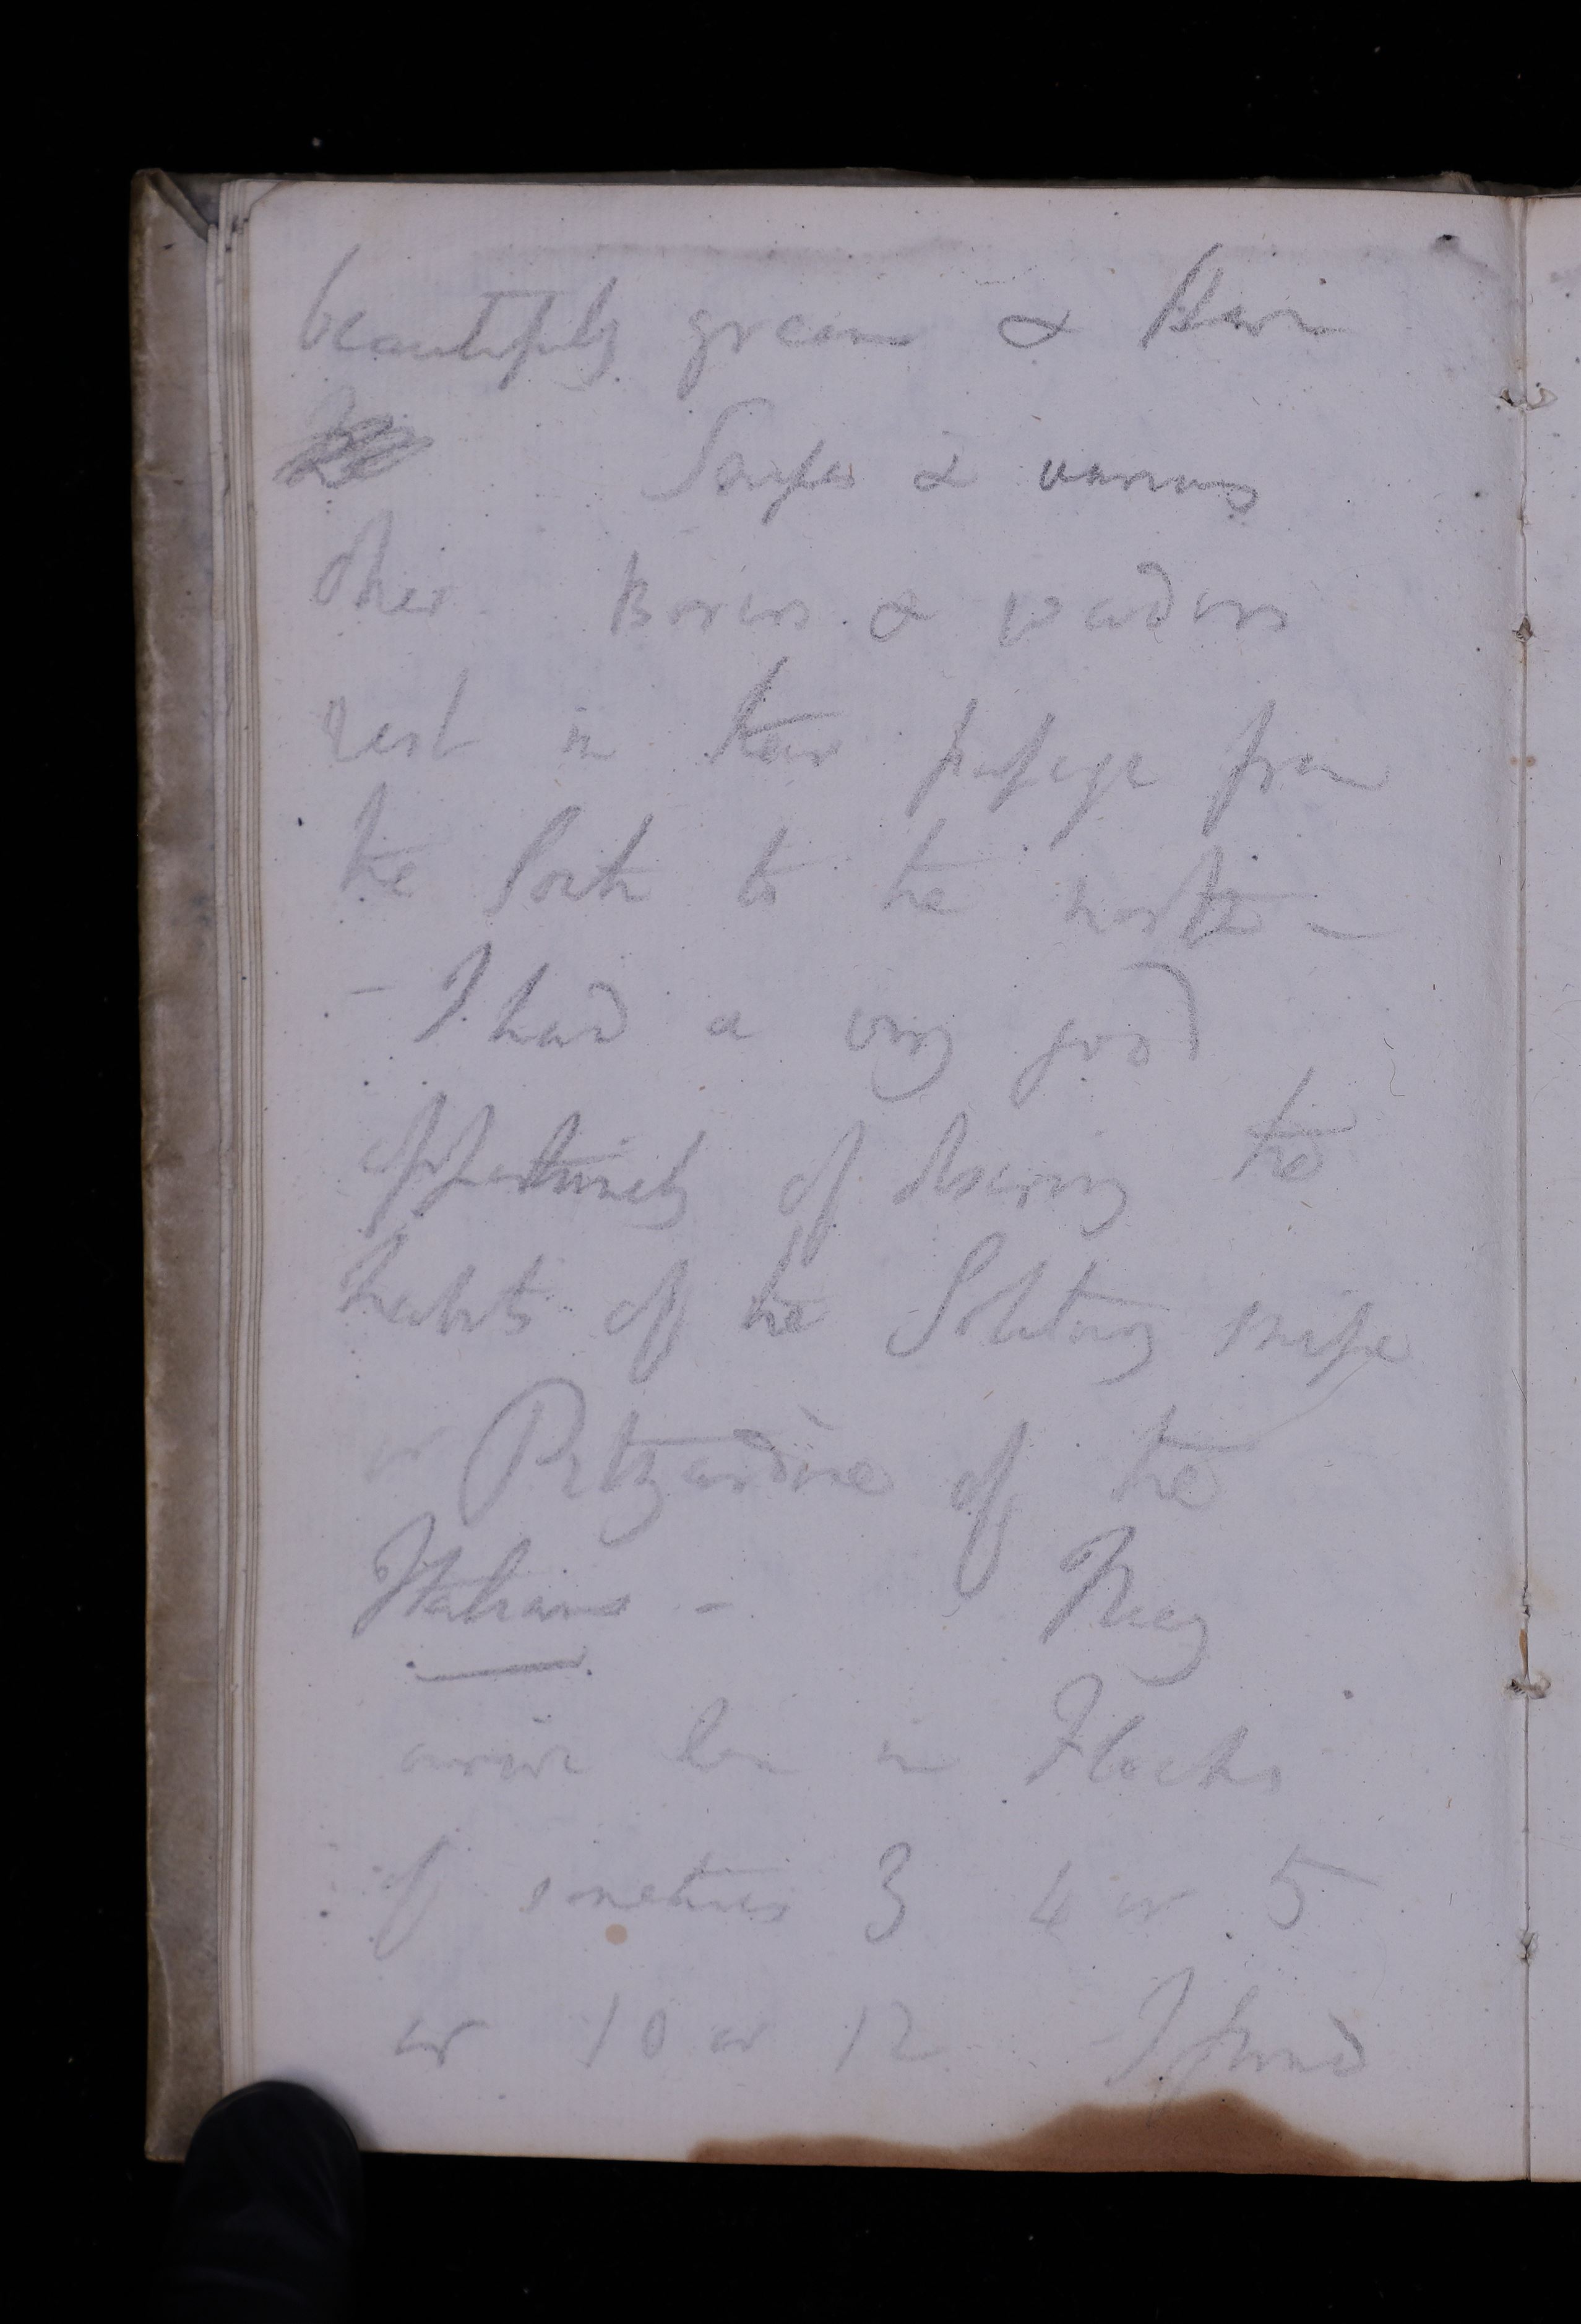 beautifully green & Here
Snipes & various
other Borers & waders
rest in their passage from
the South to the north -
- I had a very good
opportunity of observing the
habits of the Solitary snipe
or Pitzardine of the
Italians - They
arrive here in Flocks
of sometimes 3 4 or 5
or 10 or 12 - I found